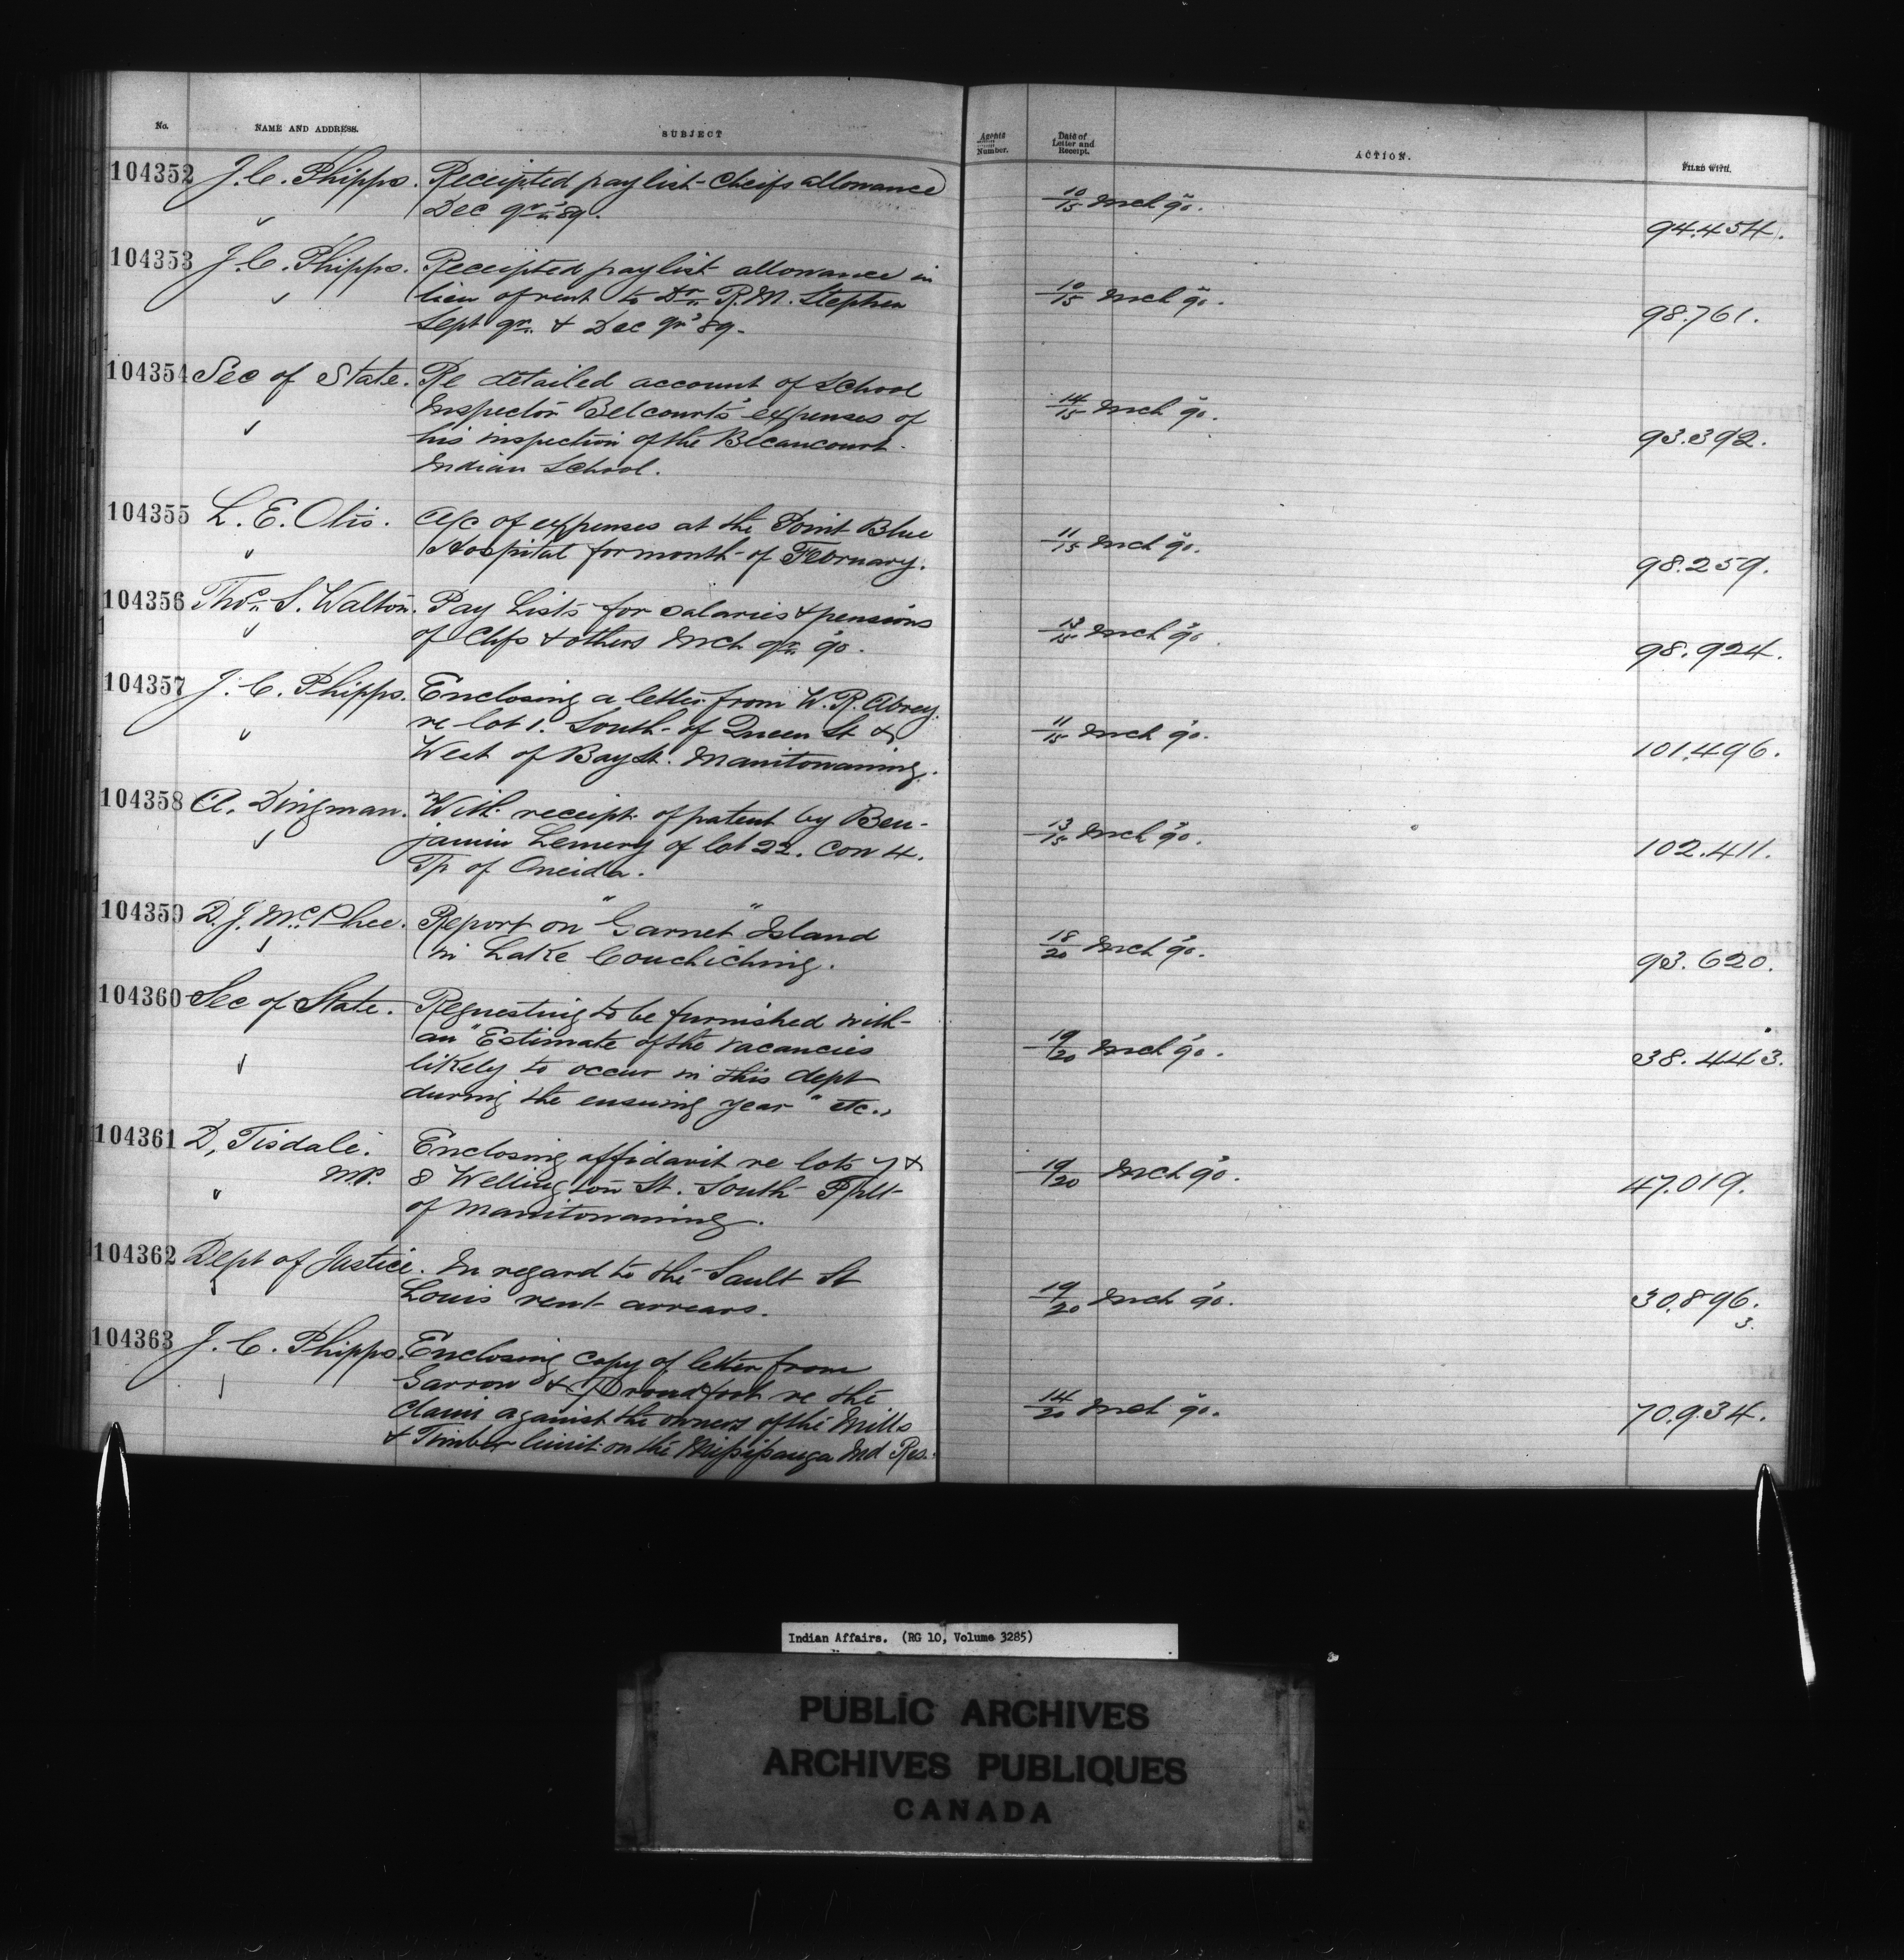 No. NAME AND ADDRESS. SUBJECT Agents Number. Date of Letter and Receipt. ACTION. FILED WITH.
104352 J. C. Phipps. Receipted paylist - Cheifs allowance 10/15 Mch '90. 94.454.
Dec qr '89.
104353 J. C. Phipps. Receipted paylist allowance in 10/15 Mch '90. 98.761.
lieu of rent to Dr. R. M. Stephen
Sept qr. & Dec qr '89.
104354 Sec of State. Re detailed account of School 14/15 Mch '90. 93.392.
Inspector Belcourt's expenses of
his inspection of the Becancourt
Indian School.
104355 L. E. Otis. A/c of expenses at the Point Blue 11/15 Mch '90. 98.259.
Hospital for month of February.
104356 Thos. S. Walton. Pay Lists for salaries & pensions 13/15 Mch '90. 98.924.
of Chfs & others Mch qr '90.
104357 J. C. Phipps. Enclosing a letter from W. R. Abrey 11/15 Mch '90. 101.496.
re lot 1. South of Queen St &
West of Bay St. Manitowaning.
104358 A. Dingman. With receipt of patent by Ben- 13/15 Mch '90. 102.411.
jamin Lemery of lot 22. Con 4.
Tp of Oneida.
104359 D. J. McPhee. Report on "Garnet" Island 18/20 Mch '90. 93.620.
in Lake Couchiching.
104360 Sec of State. Requesting to be furnished with 19/20 Mch '90. 38.443.
an "Estimate of the vacancies
likely to occur in this dept
during the ensuing year" etc.
104361 D. Tisdale. Enclosing affidavit re lots 7 & 19/20 Mch '90. 47.019.
M.P. 8 Wellington St. South
of Manitowaning.
104362 Dept of Justice. In regard to the Sault St 19/20 Mch '90. 30.896.
Louis rent arrears. 3.
104363 J. C. Phipps. Enclosing copy of letter from 14/20 Mch '90. 70.934.
Garrow & Proudfoot re the
Claim against the owners of the Mills
& Timber limit on the Missisauga Ind Res.
Indian Affairs. (RG 10, Volume 3285)
PUBLIC ARCHIVES
ARCHIVES PUBLIQUES
CANADA